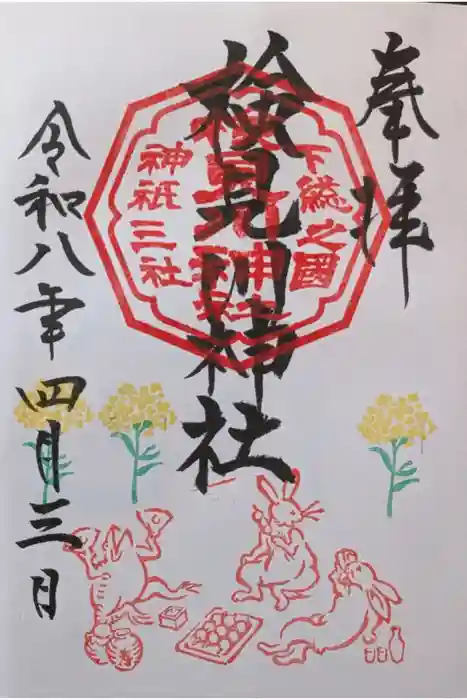 奉拝
下総之國
検見川神社
神祇三社
令和八年四月三日